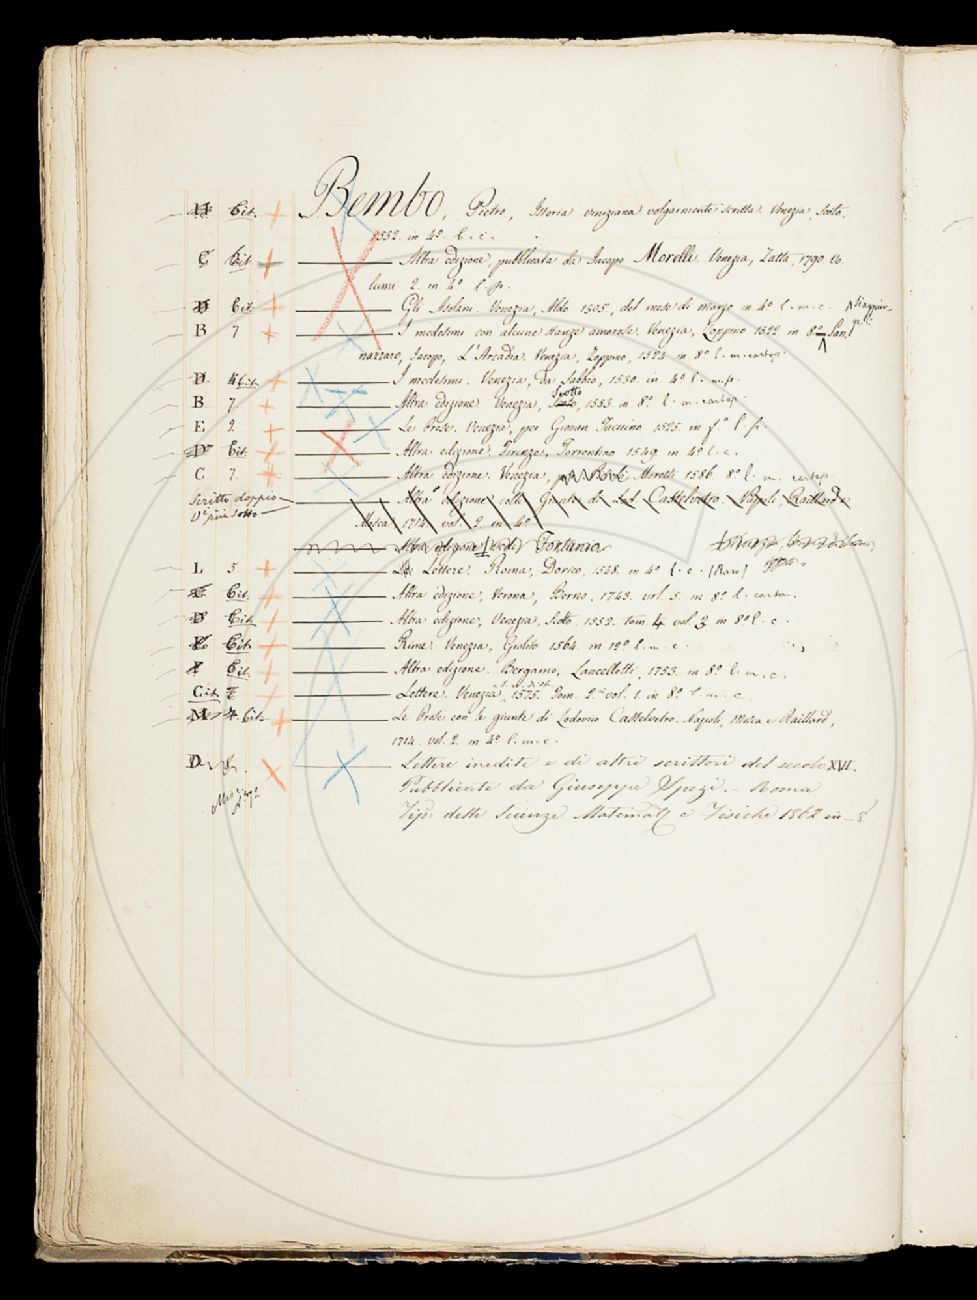 Cit. Bembo, Pietro, Istoria viniziana volgarmente scritta. Venezia, Scoto,
1552. in 4º l. c.
C Cit Altra edizione, pubblicata da Jacopo Morelli. Venezia, Zatta, 1790 vo-
lumi 2. in 4º l. p.
Cit Gli Asolani. Venezia, Aldo 1505, del mese di marzo in 4º l. m. c.
B 7 I medesimi con alcune stanze amorose. Venezia, Zoppino 1522 in 8º San-
nazzaro, Jacopo, L'Arcadia. Venezia, Zoppino, 1524 in 8º l. m. cartap.
D 4 Cit I medesimi. Venezia, da Sabbio, 1530. in 4º l. m. p.
B 7 Altra edizione Venezia, Scotto, 1553 in 8º l. m. cartap.
E 2. Le Prose. Venezia, per Giovan Taccuino 1525. in fº l. p.
D Cit Altra edizione Firenze, Torrentino 1549 in 4º l. c.
C 7. Altra edizione. Venezia, Moretti 1586 8º l. m. cartap
Scritto doppio Altra edizione colle Giunte di Lod. Castelvetro. Napoli, Raillard e
Vº più sotto
Mosca, 1714 vol. 2. in 4º
Altra edizione (vedi) Fontanin
L 5. Lettere. Roma, Dorico, 1548. in 4º l. c. (Raro)
Cit. Altra edizione, Verona, Berno, 1743. vol. 5. in 8º l. carton.
D Cit. Altra edizione, Venezia, Scotto, 1552. tom 4 vol 3 in 8º l. c.
Cit. Rime. Venezia, Giolito 1564. in 12º l. m. c.
Cit. Altra edizione. Bergamo, Lancellotti, 1753. in 8º l. m. c.
Cit. Lettere. Venezia, 1575. Tom. 2º vol. 1. in 8º l m. c.
M 4 Cit. Le Prose con le giunte di Lodovico Castelvetro. Napoli, Mosca e Raillard,
1714. vol. 2. in 4º l. m. c.
D 8. Lettere inedite e di altri scrittori del secolo XVI.
Pubblicate da Giuseppe Spezi. - Roma
Tip. delle Scienze Matemat. e Fisiche 1862 in - 8